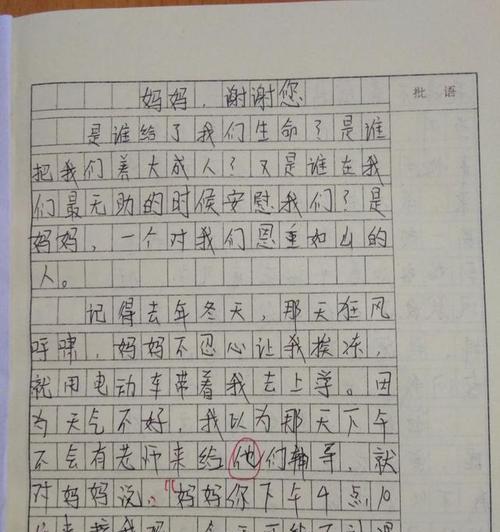 妈妈，谢谢您
批语
是谁给了我们生命？是谁
把我们养大成人？又是谁在我
们最无助的时候安慰我们？是
妈妈，一个对我们恩重如山的
人。
记得去年冬天，那天狂风
呼啸，妈妈不忍心让我挨冻，
就用电动车带着我去上学。因
为天气不好，我以为那天下午
不会有老师来给他们辅导，就
对妈妈说：“妈妈你下午4点10